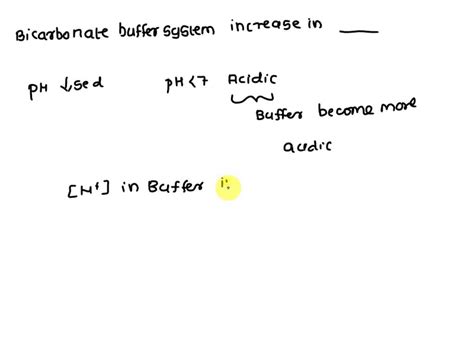 Bicarbonate buffer system increase in ___
pH ↓sed pH<7 Acidic
Buffer become more
acidic
[H⁺] in Buffer i